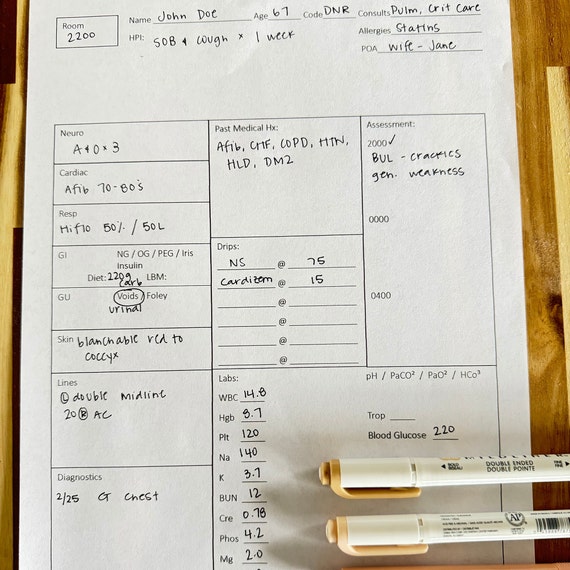 Room
2200
Name John Doe Age 67 Code DNR Consults Pulm, Crit Care
HPI: SOB & cough x 1 week
Allergies Statins
POA wife - Jane
Neuro
A&O x 3
Cardiac
Afib 70-80's
Resp
Hiflo 50% / 50L
GI NG / OG / PEG / Iris
Insulin
Diet: 220g LBM:
carb
GU Voids / Foley
urinal
Skin blanchable red to
coccyx
Lines
Ⓛ double midline
20 Ⓡ AC
Diagnostics
2/25 CT chest
Past Medical Hx:
Afib, CHF, COPD, HTN,
HLD, DM2
Drips:
NS @ 75
Cardizem @ 15
@
@
@
@
Labs:
WBC 14.8
Hgb 8.7
Plt 120
Na 140
K 3.7
BUN 12
Cre 0.78
Phos 4.2
Mg 2.0
Assessment:
2000 ✓
BUL - crackles
gen. weakness
0000
0400
pH / PaCO² / PaO² / HCo³
Trop
Blood Glucose 220
BOLD
DOUBLE ENDED
DOUBLE POINTE
FINE
AP